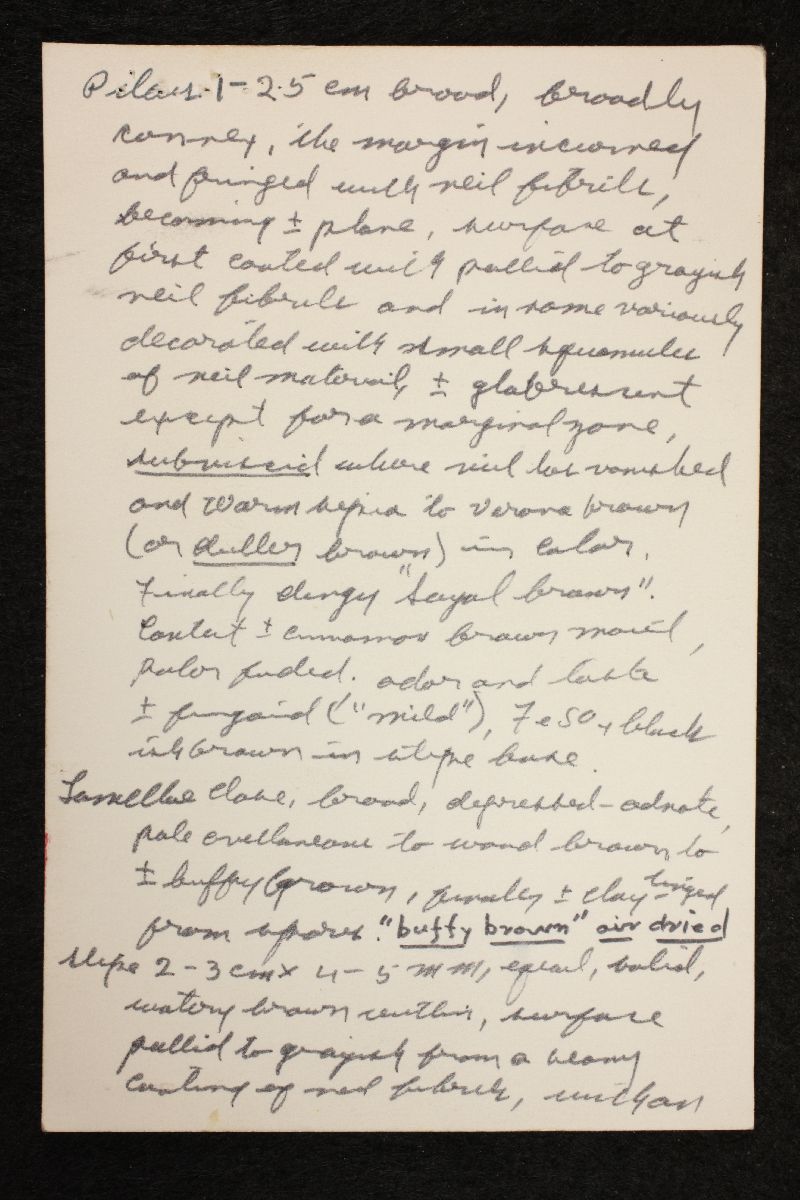 Pileus 1-2.5 cm broad, broadly
convex, the margin incurved
and fringed with veil fibrils,
becoming ± plane, surface at
first coated with pallid to grayish
veil fibrils and in some variously
decorated with small squamules
of veil material, ± glabrescent
except for a marginal zone,
subviscid where veil has vanished
and warm sepia to verona brown
(or duller brown) in color.
Finally dingy "Sayal brown".
Context ± cinnamon brown moist,
paler faded. odor and taste
± fungoid ("mild"), FeSO4 black
ish brown in stipe base.
Lamellae close, broad, depressed-adnate,
pale avellaneous to wood brown to
± buffy brown, finally ± clay tinged
from spores. "buffy brown" air dried
Stipe 2-3 cm x 4-5 mm, equal, solid,
watery brown within, surface
pallid to grayish from a heavy
coating of veil fibrils, with an